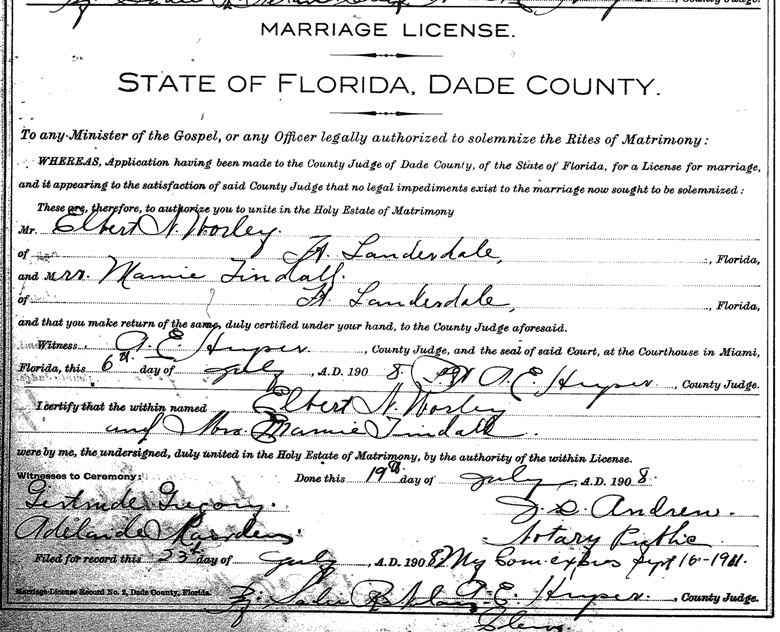 , County Judge.
MARRIAGE LICENSE.
STATE OF FLORIDA, DADE COUNTY.
To any Minister of the Gospel, or any Officer legally authorized to solemnize the Rites of Matrimony:
WHEREAS, Application having been made to the County Judge of Dade County, of the State of Florida, for a License for marriage,
and it appearing to the satisfaction of said County Judge that no legal impediments exist to the marriage now sought to be solemnized:
These are, therefore, to authorize you to unite in the Holy Estate of Matrimony
Mr. Elbert N. Worley.
of Ft. Lauderdale, , Florida,
and Mrs. Mamie Tindall.
of Ft. Lauderdale, , Florida,
and that you make return of the same, duly certified under your hand, to the County Judge aforesaid.
Witness A. E. Heyser. , County Judge, and the seal of said Court, at the Courthouse in Miami,
Florida, this 6th day of July , A.D. 190 8. A. E. Heyser , County Judge.
I certify that the within named Elbert N. Worley
and Mrs. Mamie Tindall.
were by me, the undersigned, duly united in the Holy Estate of Matrimony, by the authority of the within License.
Witnesses to Ceremony: Done this 19th day of July , A.D. 190 8.
Gertrude Gregory. J. S. Andrew.
Adelaide Notary Public
Filed for record this 23d day of July , A.D. 190 8. My Com expires Sept 16-1911.
Marriage License Record No. 2, Dade County, Florida. A. E. Heyser , County Judge.